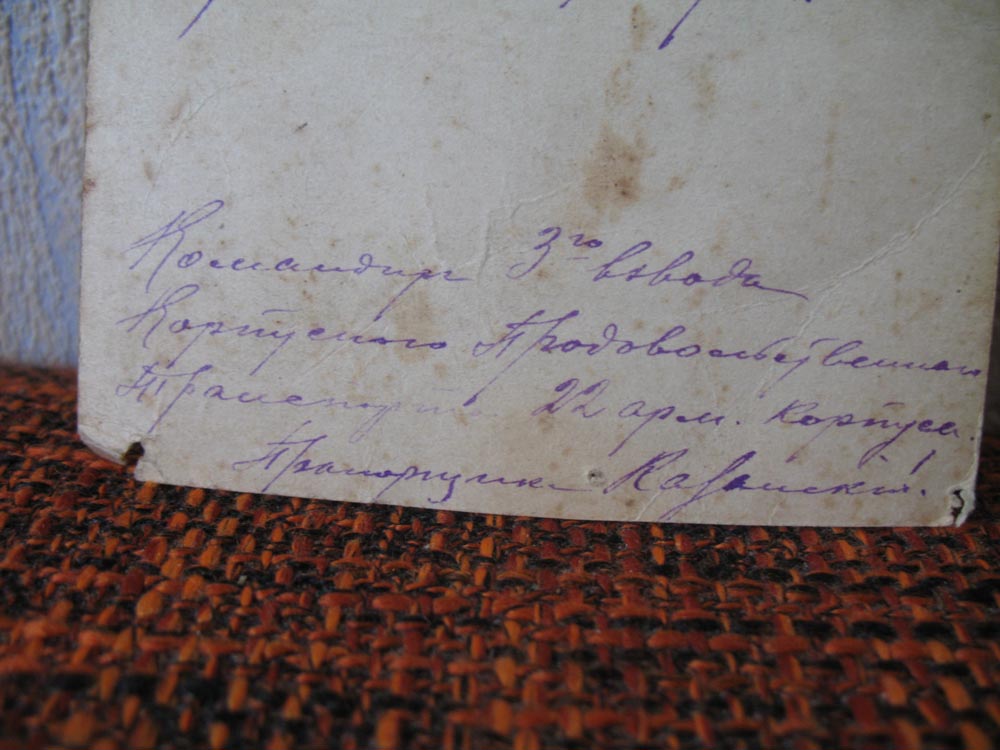 Командиръ 3го взвода
Корпусного Продовольственнаго
Транспорта 22 арм. корпуса.
Прапорщикъ Казанскій.